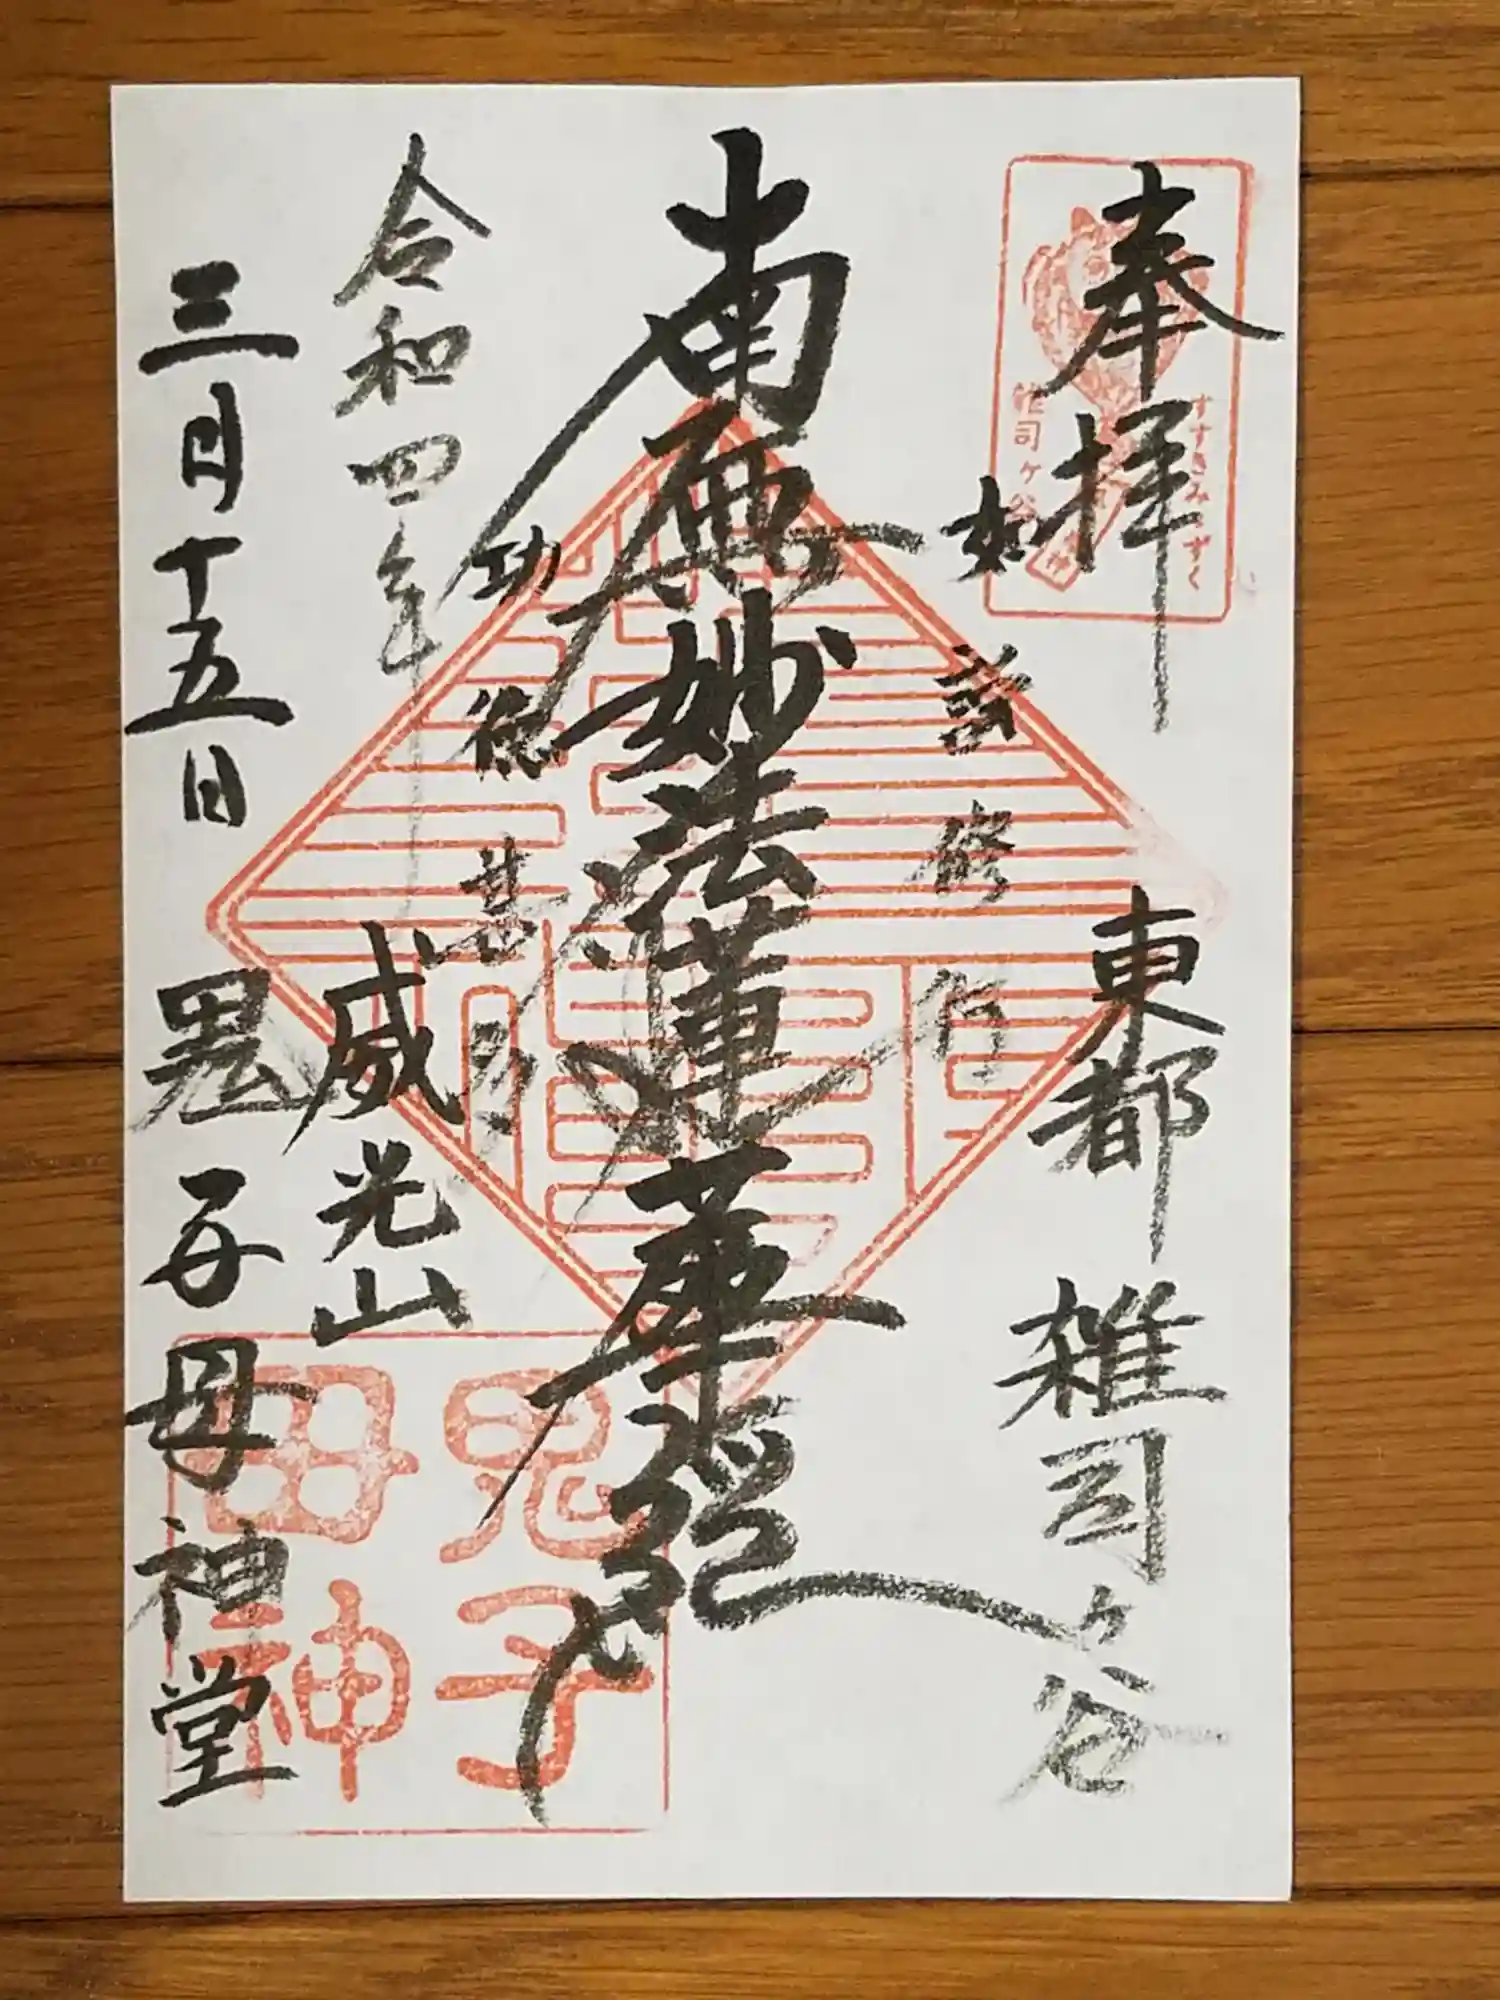 奉拝
東都 雑司ヶ谷
すすきみみずく
雑司ヶ谷
如説修行
南無妙法蓮華経
功徳甚多
令和四年
三月十五日
威光山
鬼子母神堂
鬼子
母神